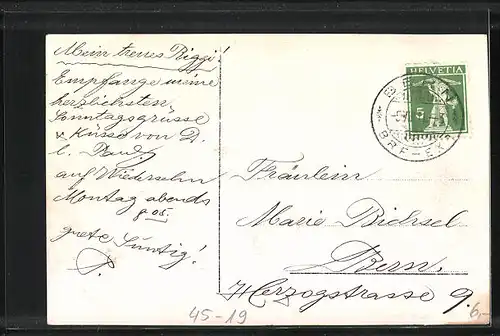 Mein treues Riggi!
Empfange meine
herzlichsten
Sonntagsgrüsse
& Küsse von D.
l.
auf Wiedersehn
Montag abends
8 05.
guete Suntig!
P.
HELVETIA
5
BRF. EXP.
Fräulein
Marie Bichsel
Bern.
Herzogstrasse 9.
6,-
45-19